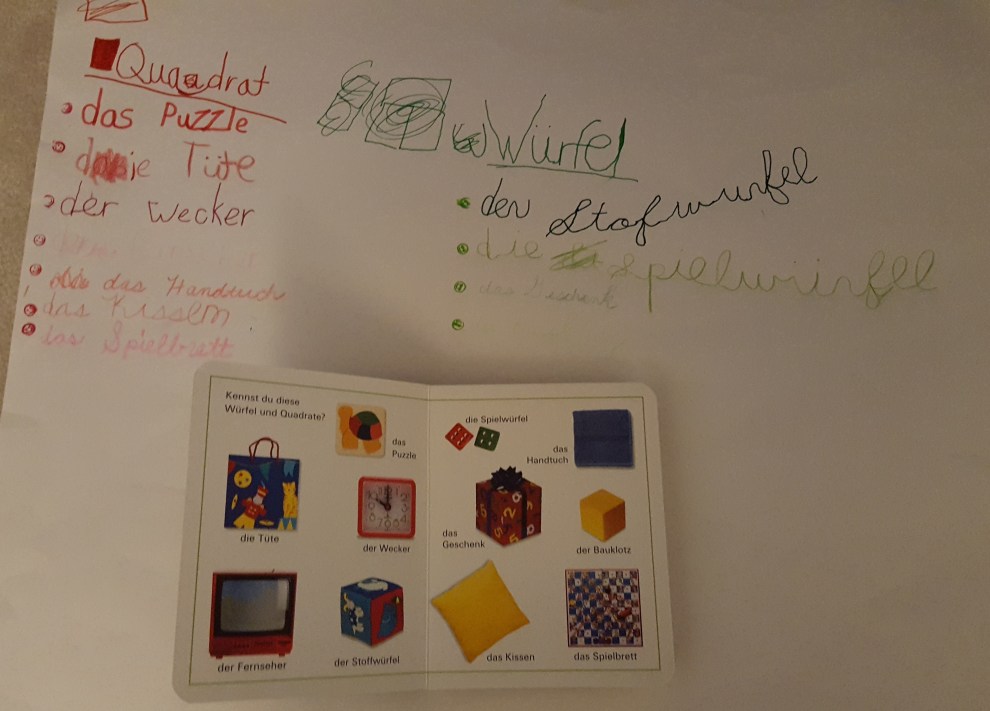 Quadrat
das Puzzle
die Tüte
der Wecker
das Handtuch
das Kissen
das Spielbrett
Würfel
der Stofwurfel
die Spielwürfel
das Geschenk
Kennst du diese
Würfel und Quadrate?
das
Puzzle
die Tüte
der Wecker
der Fernseher
der Stoffwürfel
die Spielwürfel
das
Handtuch
das
Geschenk
der Bauklotz
das Kissen
das Spielbrett